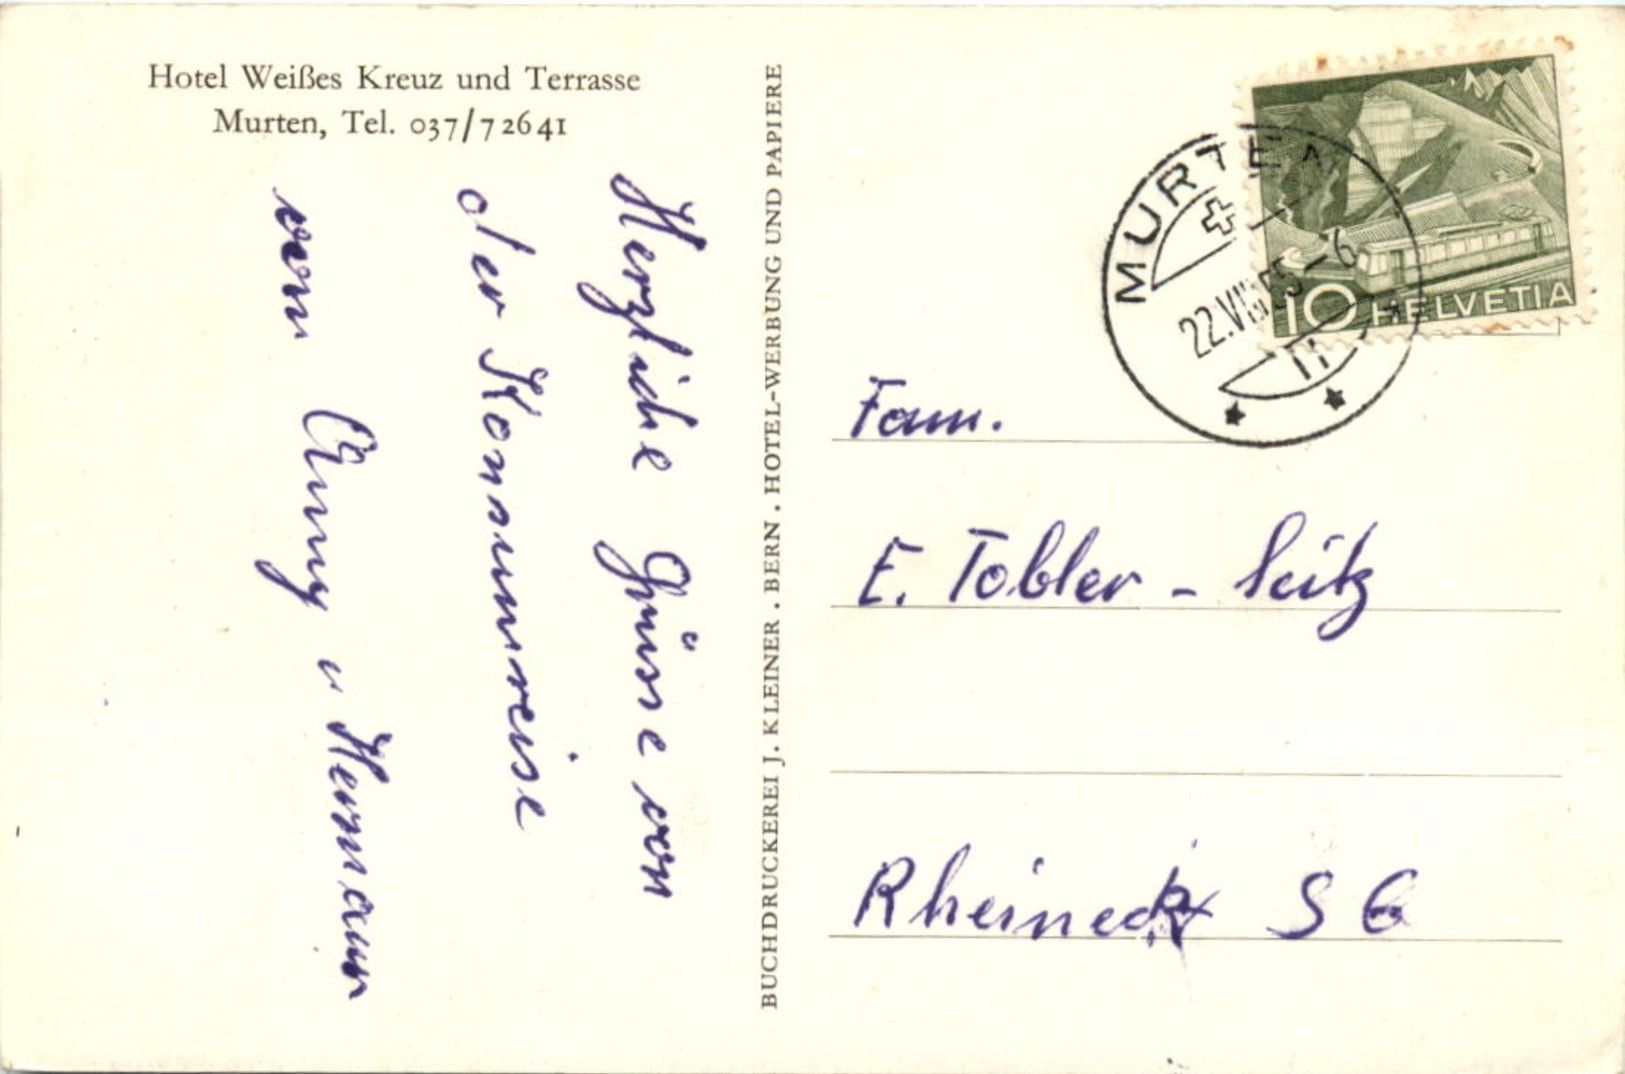 Hotel Weißes Kreuz und Terrasse
Murten, Tel. 037/7 26 41
Herzliche Grüsse von
der Konsumreise
vom Anny u Hermann
BUCHDRUCKEREI J. KLEINER . BERN . HOTEL-WERBUNG UND PAPIERE
MURTEN
22.VIII.55–6
10 HELVETIA
Fam.
E. Tobler - Seitz
Rheineck SG